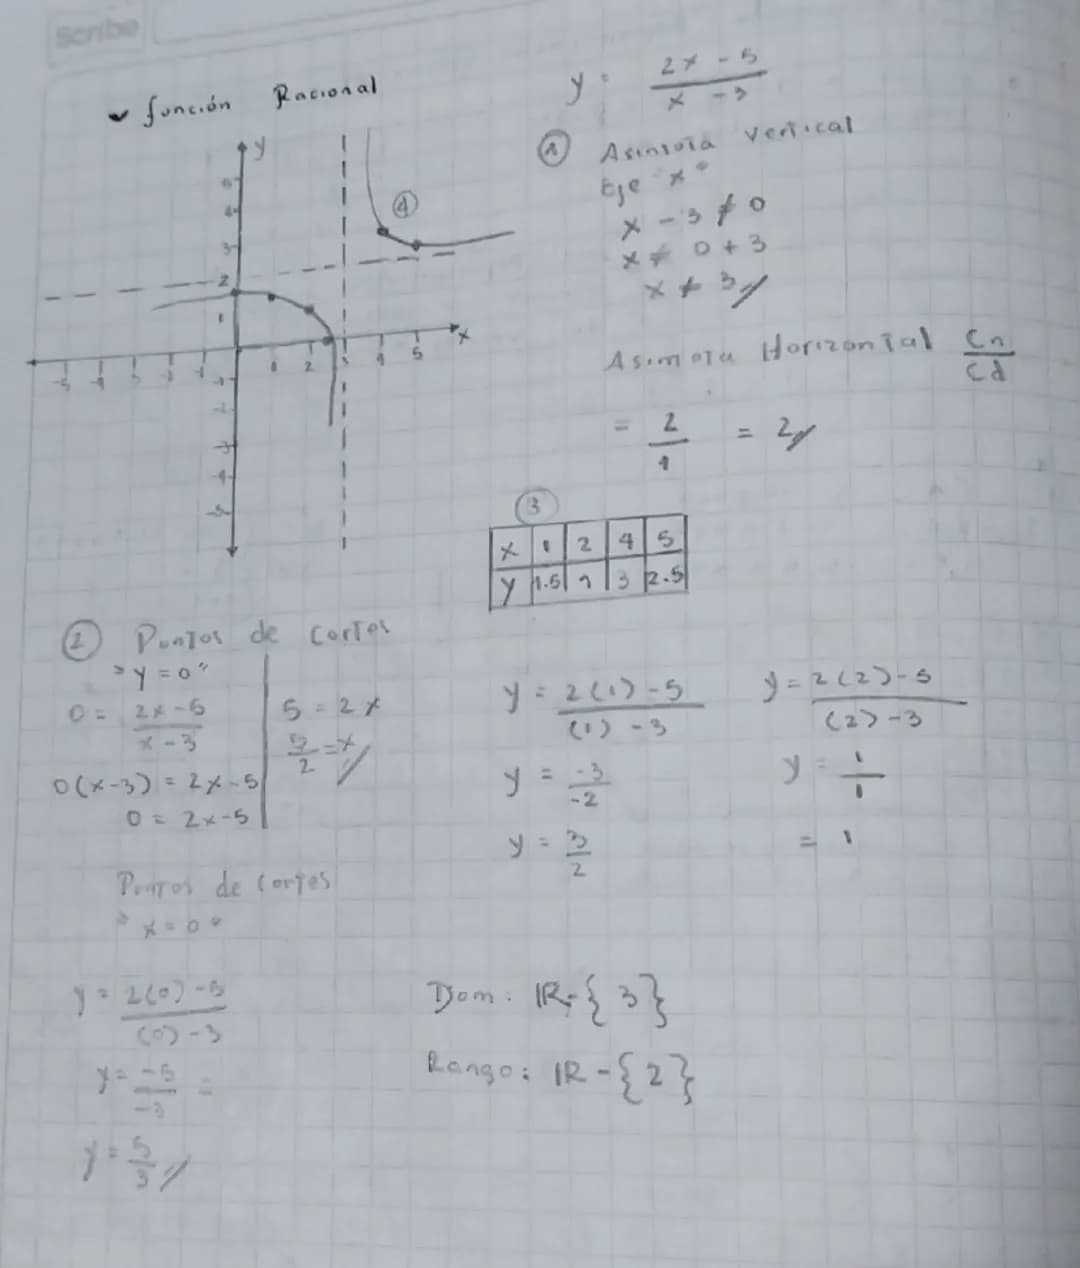 scribe
función Racional
y = 2x - 5 / x - 3
① Asintota Vertical
Eje "x"
x - 3 ≠ 0
x ≠ 0 + 3
x ≠ 3
Asintota Horizontal Cn / Cd
= 2 / 1 = 2
y
5
4
3
2
1
-5 -4 -3 -2 -1 1 2 3 4 5 x
-1
-2
-3
-4
-5
④
③
x 1 2 4 5
y 1.5 1 3 2.5
② Puntos de Cortes
"y = 0"
0 = 2x - 5 / x - 3
0(x-3) = 2x-5
0 = 2x-5
5 = 2x
5/2 = x
Puntos de Cortes
"x = 0"
y = 2(0) - 5 / (0) - 3
y = -5 / -3 =
y = 5/3
y = 2(1) - 5 / (1) - 3
y = -3 / -2
y = 3/2
y = 2(2) - 5 / (2) - 3
y = 1/1
= 1
Dom: IR-{3}
Rango: IR-{2}